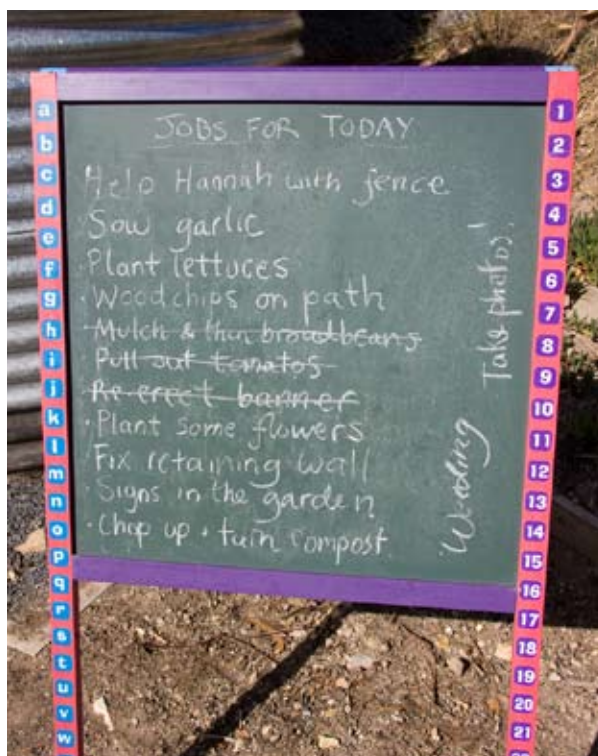 JOBS FOR TODAY
Help Hannah with fence
Sow garlic
Plant lettuces
· Woodchips on path
· Mulch & thin broadbeans
· Pull out tomatos
· Re erect banner
· Plant some flowers
Fix retaining wall
· Signs in the garden
· Chop up + turn compost.
· Weeding
Take photos!
a
b
c
d
e
f
g
h
i
j
k
l
m
n
o
p
q
r
s
t
u
v
w
1
2
3
4
5
6
7
8
9
10
11
12
13
14
15
16
17
18
19
20
21